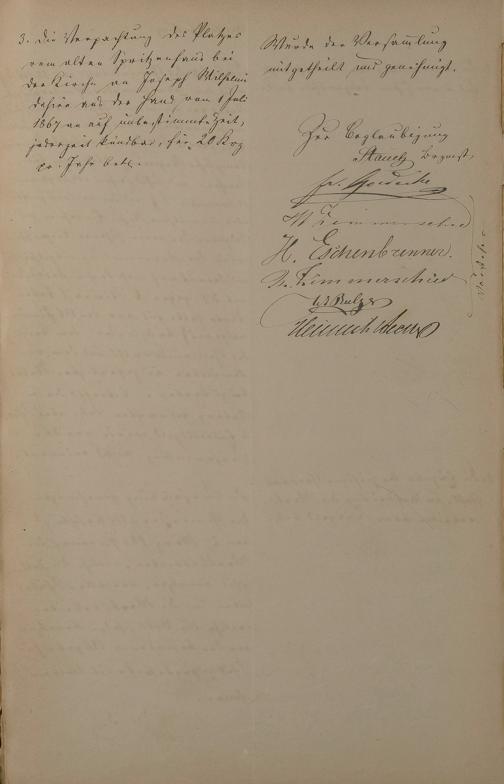 3. Die Verpachtung des Platzes
vom alten Spritzenhaus bei
der Kirche an Joseph Wilhelmi
dahier aus der Hand, vom 1 Juli
1867 an auf unbestimmte Zeit,
jederzeit kündbar, für 20 Krz
pr. Jahr betr.
Wurde der Versammlung
mitgetheilt und genehmigt.
Zur Beglaubigung
Stauch Bürgmstr.
Fr.
W Zimmerschied
H. Eschenbrenner.
Zimmerschied
Heinrich
Vorsteher